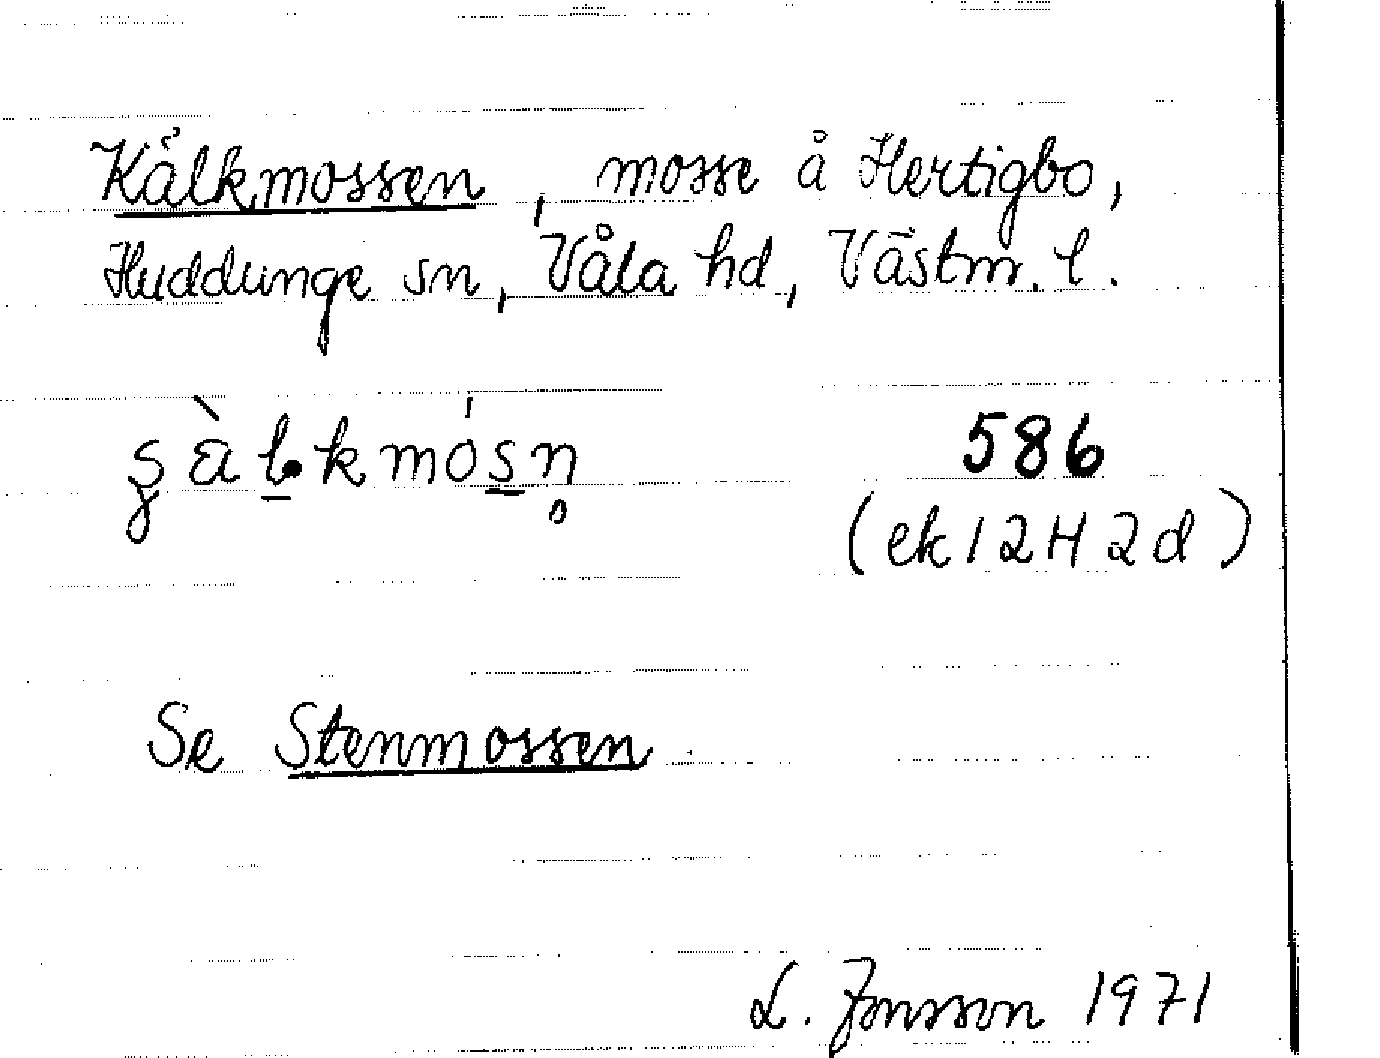 Kälkmossen, mosse å Hertigbo,
Huddunge sn, Våla hd, Västm. l.
586
(ek 12H 2d)
Se Stenmossen
L. Jonsson 1971